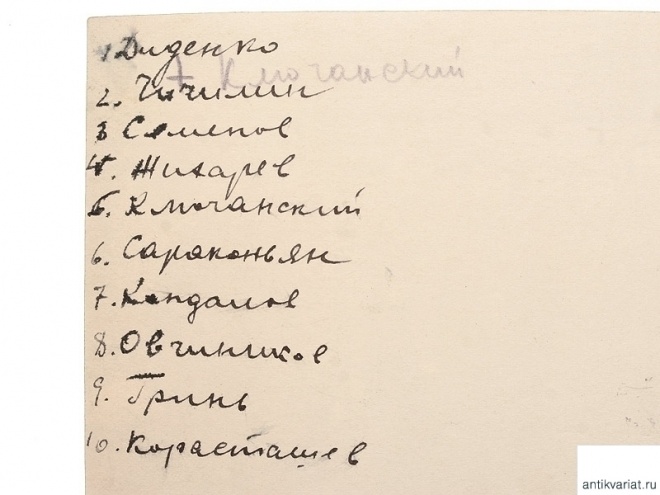 1. Диденко
7 Клочанский
2. Чичилин
3 Семенов
4. Жихарев
5. Клочанский
6. Сараконьян
7. Кондалов
8. Овчиников
9. Гринь
10. Корасташев
antikvariat.ru